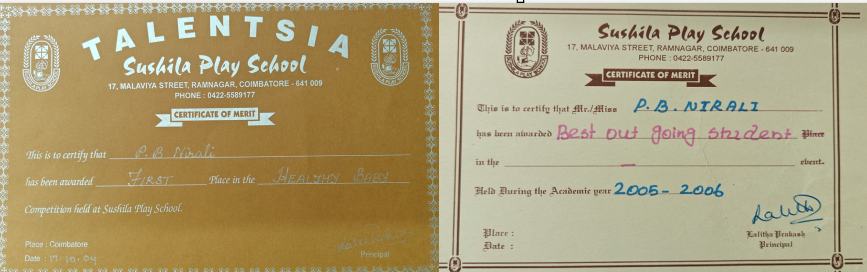 TALENTSIA
Sushila Play School
17, MALAVIYA STREET, RAMNAGAR, COIMBATORE - 641 009
PHONE : 0422-5589177
CERTIFICATE OF MERIT
This is to certify that P. B. Nirali
has been awarded FIRST Place in the HEALTHY BABY
Competition held at Sushila Play School.
Place : Coimbatore
Date :
Principal
Sushila Play School
17, MALAVIYA STREET, RAMNAGAR, COIMBATORE - 641 009
PHONE : 0422-5589177
CERTIFICATE OF MERIT
This is to certify that Mr./Miss P. B. NIRALI
has been awarded Best out going student Place
in the — event.
Held During the Academic year 2005 - 2006
Lalitha Prakash
Principal
Place :
Date :